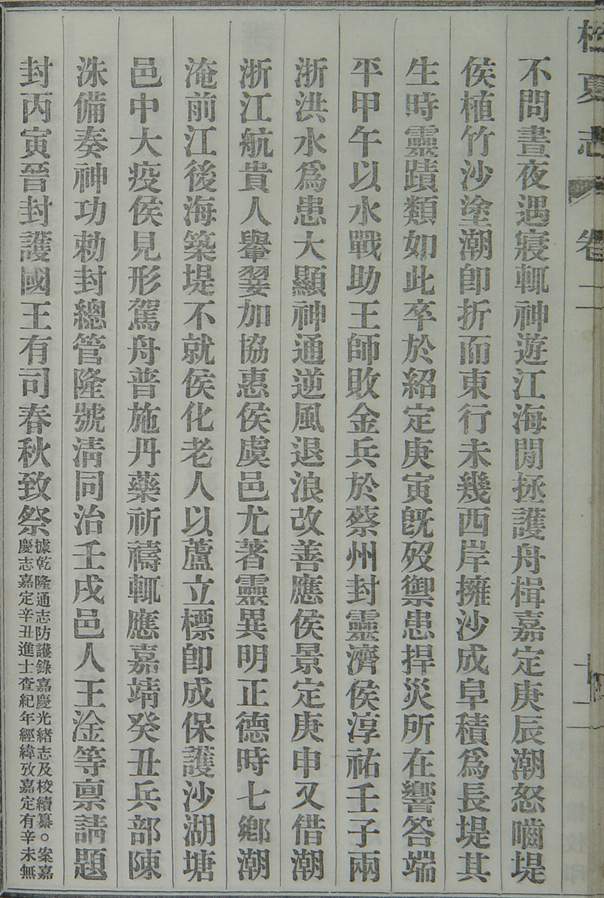 夏志
卷二
不問晝夜遇寢輒神遊江海閒拯護舟楫嘉定庚辰潮怒嚙堤
侯植竹沙塗潮卽折而東行未幾西岸擁沙成阜積爲長堤其
生時靈蹟類如此卒於紹定庚寅旣歿禦患捍災所在響答端
平甲午以水戰助王師敗金兵於蔡州封靈濟侯淳祐壬子兩
浙洪水爲患大顯神通逆風退浪改善應侯景定庚申又借潮
浙江航貴人轝翣加協惠侯虞邑尤著靈異明正德時七鄉潮
淹前江後海築堤不就侯化老人以蘆立標卽成保護沙湖塘
邑中大疫侯見形駕舟普施丹藥祈禱輒應嘉靖癸丑兵部陳
洙備奏神功勅封總管隆號淸同治壬戌邑人王淦等禀請題
封丙寅晉封護國王有司春秋致祭據乾隆通志防護錄嘉慶光緖志及校續纂○案嘉
慶志嘉定辛丑進士查紀年經緯攷嘉定有辛未無